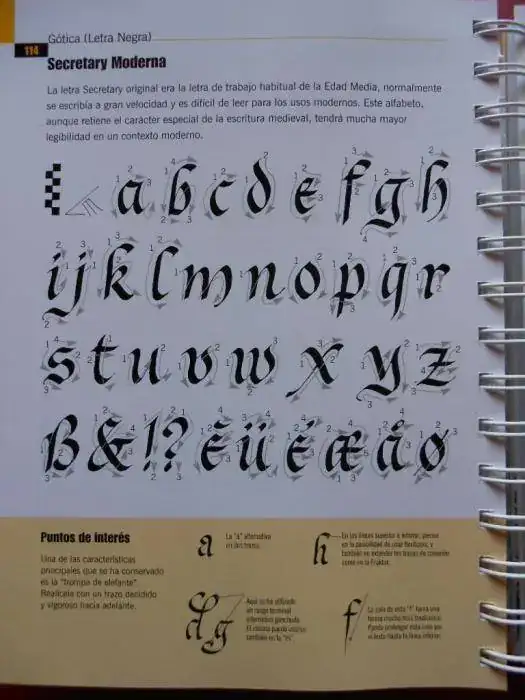 Gótica (Letra Negra)
114
Secretary Moderna
La letra Secretary original era la letra de trabajo habitual de la Edad Media, normalmente
se escribía a gran velocidad y es difícil de leer para los usos modernos. Este alfabeto,
aunque retiene el carácter especial de la escritura medieval, tendrá mucha mayor
legibilidad en un contexto moderno.
a b c d e f g h
i j k l m n o p q r
s t u v w x y z
ß & ! ? ê ü é æ å ø
Puntos de interés
Una de las características
principales que se ha conservado
es la "trompa de elefante".
Realícela con un trazo decidido
y vigoroso hacia adelante.
a
La "a" alternativa
en dos trazos.
h
En las líneas superior e inferior, piense
en la posibilidad de usar florituras, y
también en extender los trazos de conexión
como en la Fraktur.
d g
Aquí se ha utilizado
un rasgo terminal
alternativo
también en la
f
La cola de esta "f" tiene una
forma mucho más tradicional.
Puede prolongar esta cola por